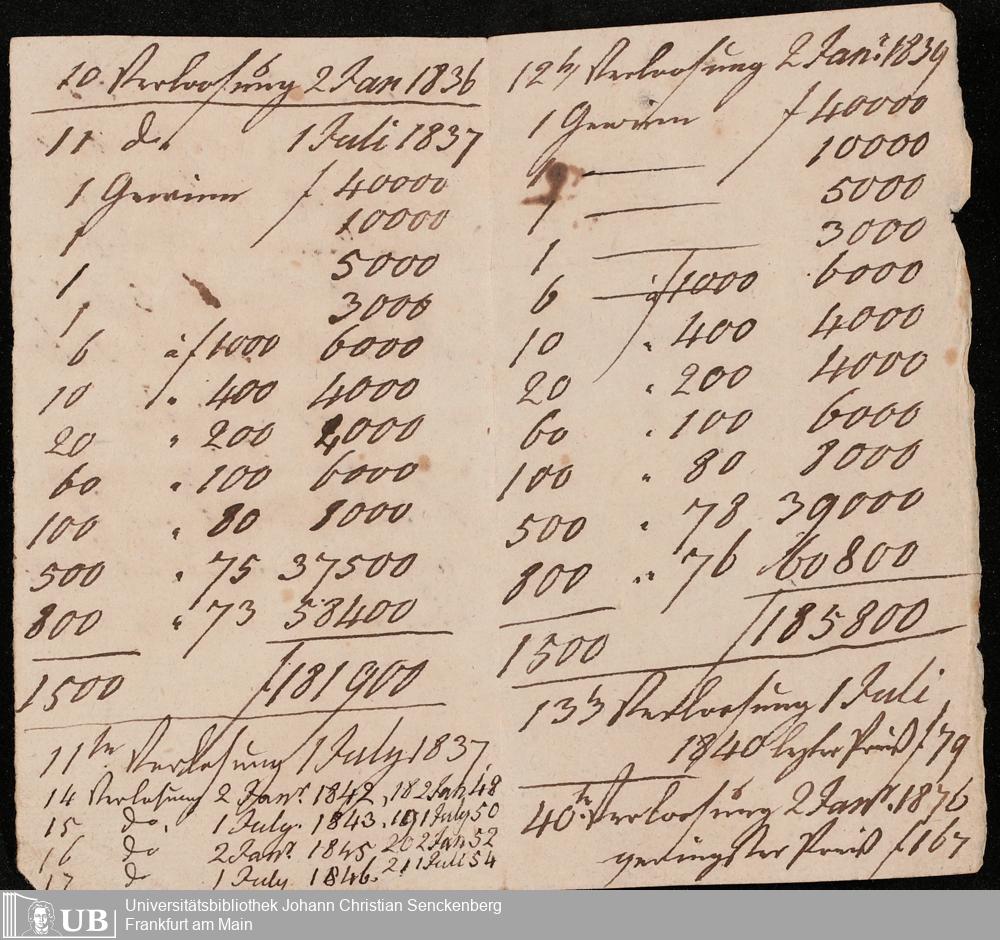 10. Verloosung 2 Jan 1836
11 do. 1 Juli 1837
1 Gewinn f 40000
1 10000
1 5000
1 3000
6 à f 1000 6000
10 " 400 4000
20 " 200 4000
60 " 100 6000
100 " 80 8000
500 " 75 37500
800 " 73 58400
1500 f 181900
11te Verlosung 1 July 1837
14 Verlosung 2 Janr. 1842, 18 2 Jan 48
15 do. 1 July. 1843. 19 1 July 50
16 do 2 Janr. 1845 20 2 Jan 52
17 do 1 July. 1846. 21 1 Juli 54
12te Verloosung 2 Janr. 1839
1 Gewinn f 40000
1 — 10000
1 — 5000
1 — 3000
6 — à f 1000 6000
10 " 400 4000
20 " 200 4000
60 " 100 6000
100 " 80 8000
500 " 78 39000
800 " 76 60800
1500 f 185800
13te Verloosung 1 Juli
1840 lezter Preiß f 79
40te Verloosung 2 Janr. 1876
geringster Preiß f 167
UB Universitätsbibliothek Johann Christian Senckenberg
Frankfurt am Main